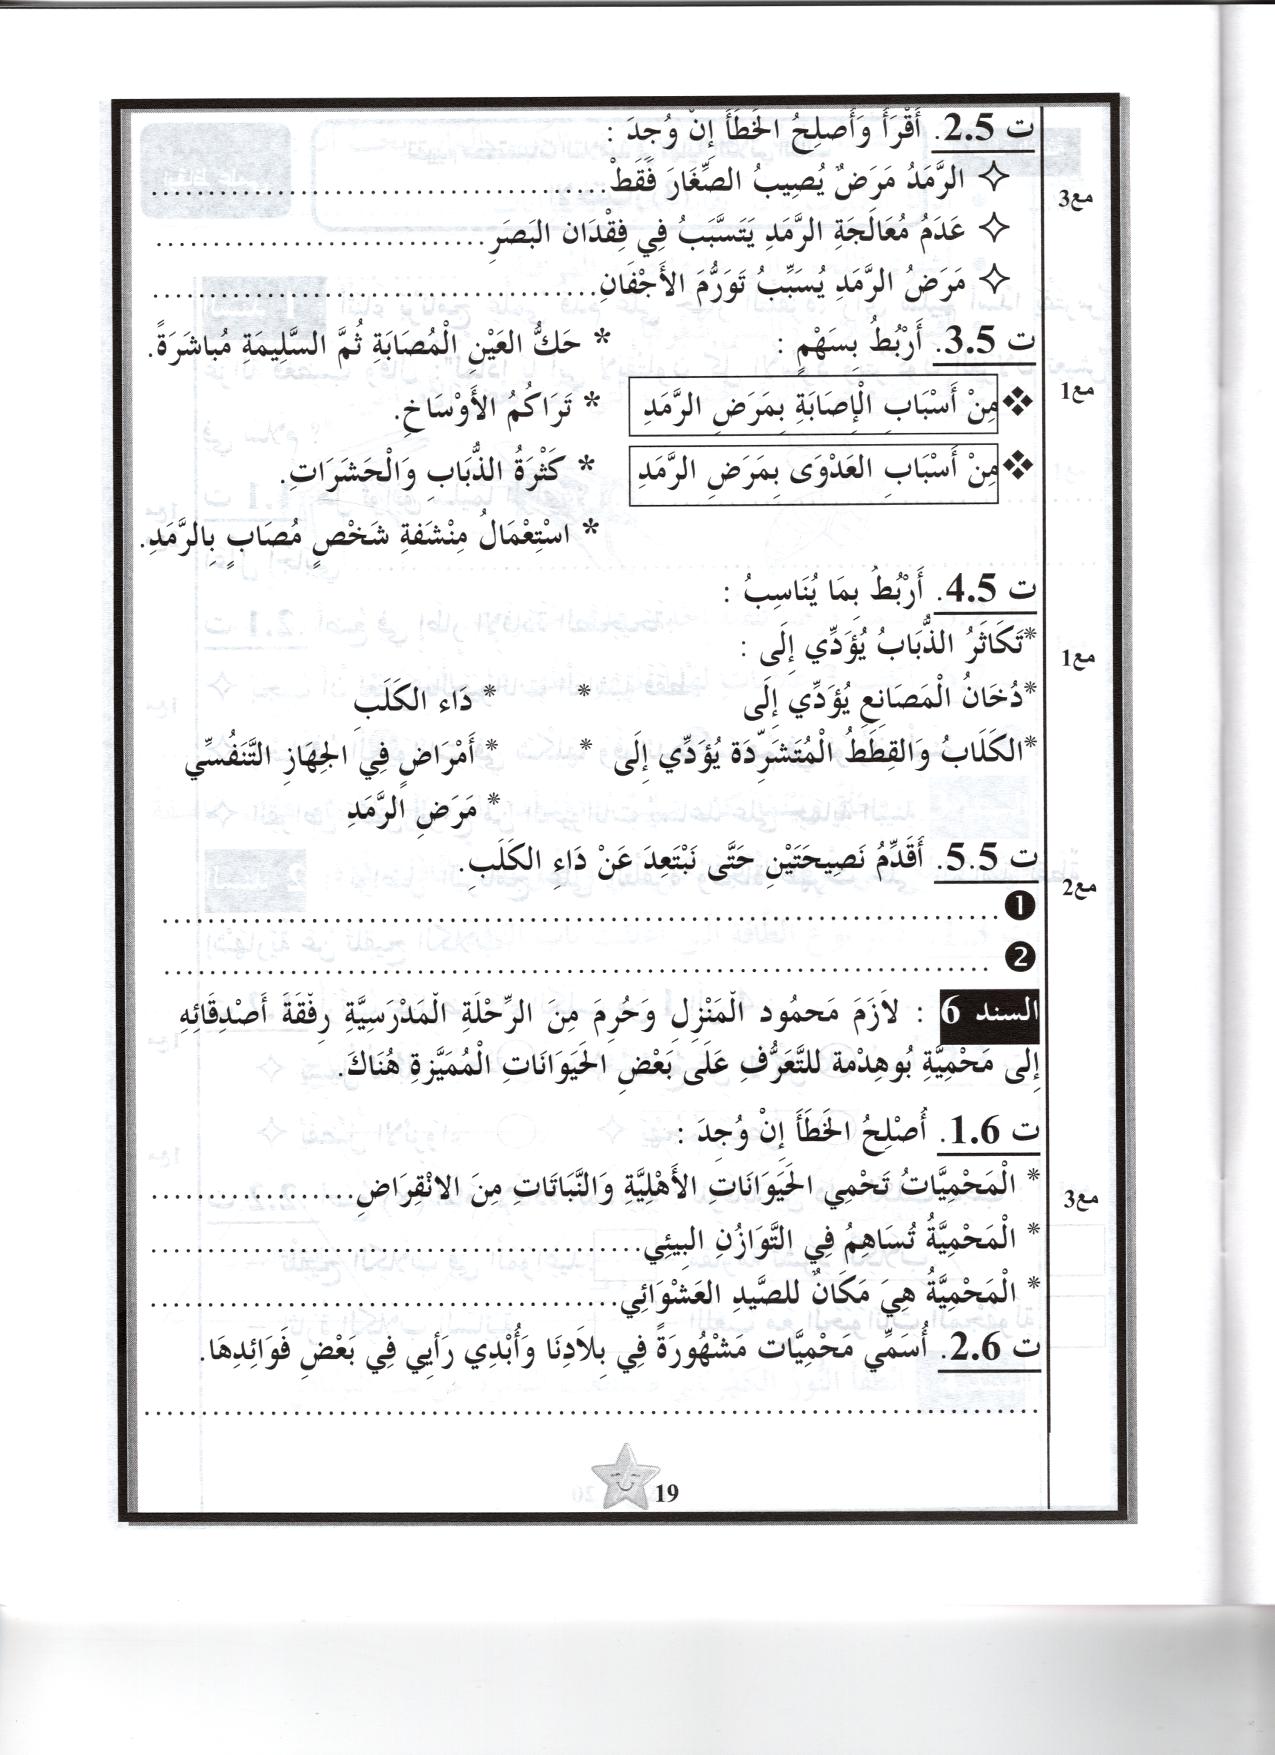 ت 2.5. أَقْرَأَ وَأَصلِحُ الخَطَأَ إِنْ وُجِدَ :
مع3
✧ الرَّمَدُ مَرَضٌ يُصِيبُ الصِّغَارَ فَقَطْ......................................
✧ عَدَمُ مُعَالَجَةِ الرَّمَدِ يَتَسَّبَبُ فِي فِقْدَان البَصَرِ...........................
✧ مَرَضُ الرَّمَدِ يُسَبِّبُ تَوَرُّمَ الأَجْفَانِ.....................................
ت 3.5. أَرْبُطُ بِسَهْمٍ : * حَكُّ العَيْنِ الْمُصَابَةِ ثُمَّ السَّلِيمَةِ مُباشَرَةً.
مع1
❖ مِنْ أَسْبَابِ الْإِصَابَةِ بِمَرَضِ الرَّمَدِ * تَرَاكُمُ الأَوْسَاخِ.
❖ مِنْ أَسْبَابِ العَدْوَى بِمَرَضِ الرَّمَدِ * كَثْرَةُ الذُّبَابِ وَالْحَشَرَاتِ.
* اسْتِعْمَالُ مِنْشَفةِ شَخْصٍ مُصَابٍ بِالرَّمَدِ.
ت 4.5. أَرْبُطُ بِمَا يُنَاسِبُ :
مع1
*تَكَاثَرُ الذُّبَابُ يُؤَدِّي إِلَى :
*دُخَانُ الْمَصَانِعِ يُؤَدِّي إِلَى * * دَاء الكَلَبِ
*الكَلَابُ وَالقِطَطُ الْمُتَشَرِّدَة يُؤَدِّي إِلَى * * أَمْرَاضٍ فِي الجِهَازِ التَّنَفُسِّي
* مَرَضِ الرَّمَدِ
ت 5.5. أَقَدِّمُ نَصِيحَتَيْنِ حَتَّى نَبْتَعِدَ عَنْ دَاءِ الكَلَبِ.
مع2
❶ ......................................................................
❷ ......................................................................
السند 6 : لاَزَمَ مَحمُود الْمَنْزِلِ وَحُرِمَ مِنَ الرِّحْلَةِ الْمَدْرَسِيَّةِ رِفْقَةَ أَصْدِقَائِهِ
إِلى مَحْمِيَّةِ بُوهِدْمة للتَّعَرُّفِ عَلَى بَعْضِ الحَيَوَانَاتِ الْمُمَيَّزةِ هُنَاكَ.
ت 1.6. أُصْلِحُ الخَطَأَ إِنْ وُجِدَ :
* الْمَحْمِيَّاتُ تَحْمِي الحَيَوَانَاتِ الأَهْلِيَّةِ وَالنَّبَاتَاتِ مِنَ الانْقِرَاضِ.................
مع3
* الْمَحْمِيَّةُ تُسَاهِمُ فِي التَّوَازُنِ البِيئِي.........................................
* الْمَحْمِيَّةُ هِيَ مَكَانٌ للصَّيدِ العَشْوَائِي.......................................
ت 2.6. أُسَمِّي مَحْمِيَّات مَشْهُورَةً فِي بِلاَدِنَا وَأُبْدِي رَأيِي فِي بَعْضِ فَوَائِدِهَا.
...........................................................................
19